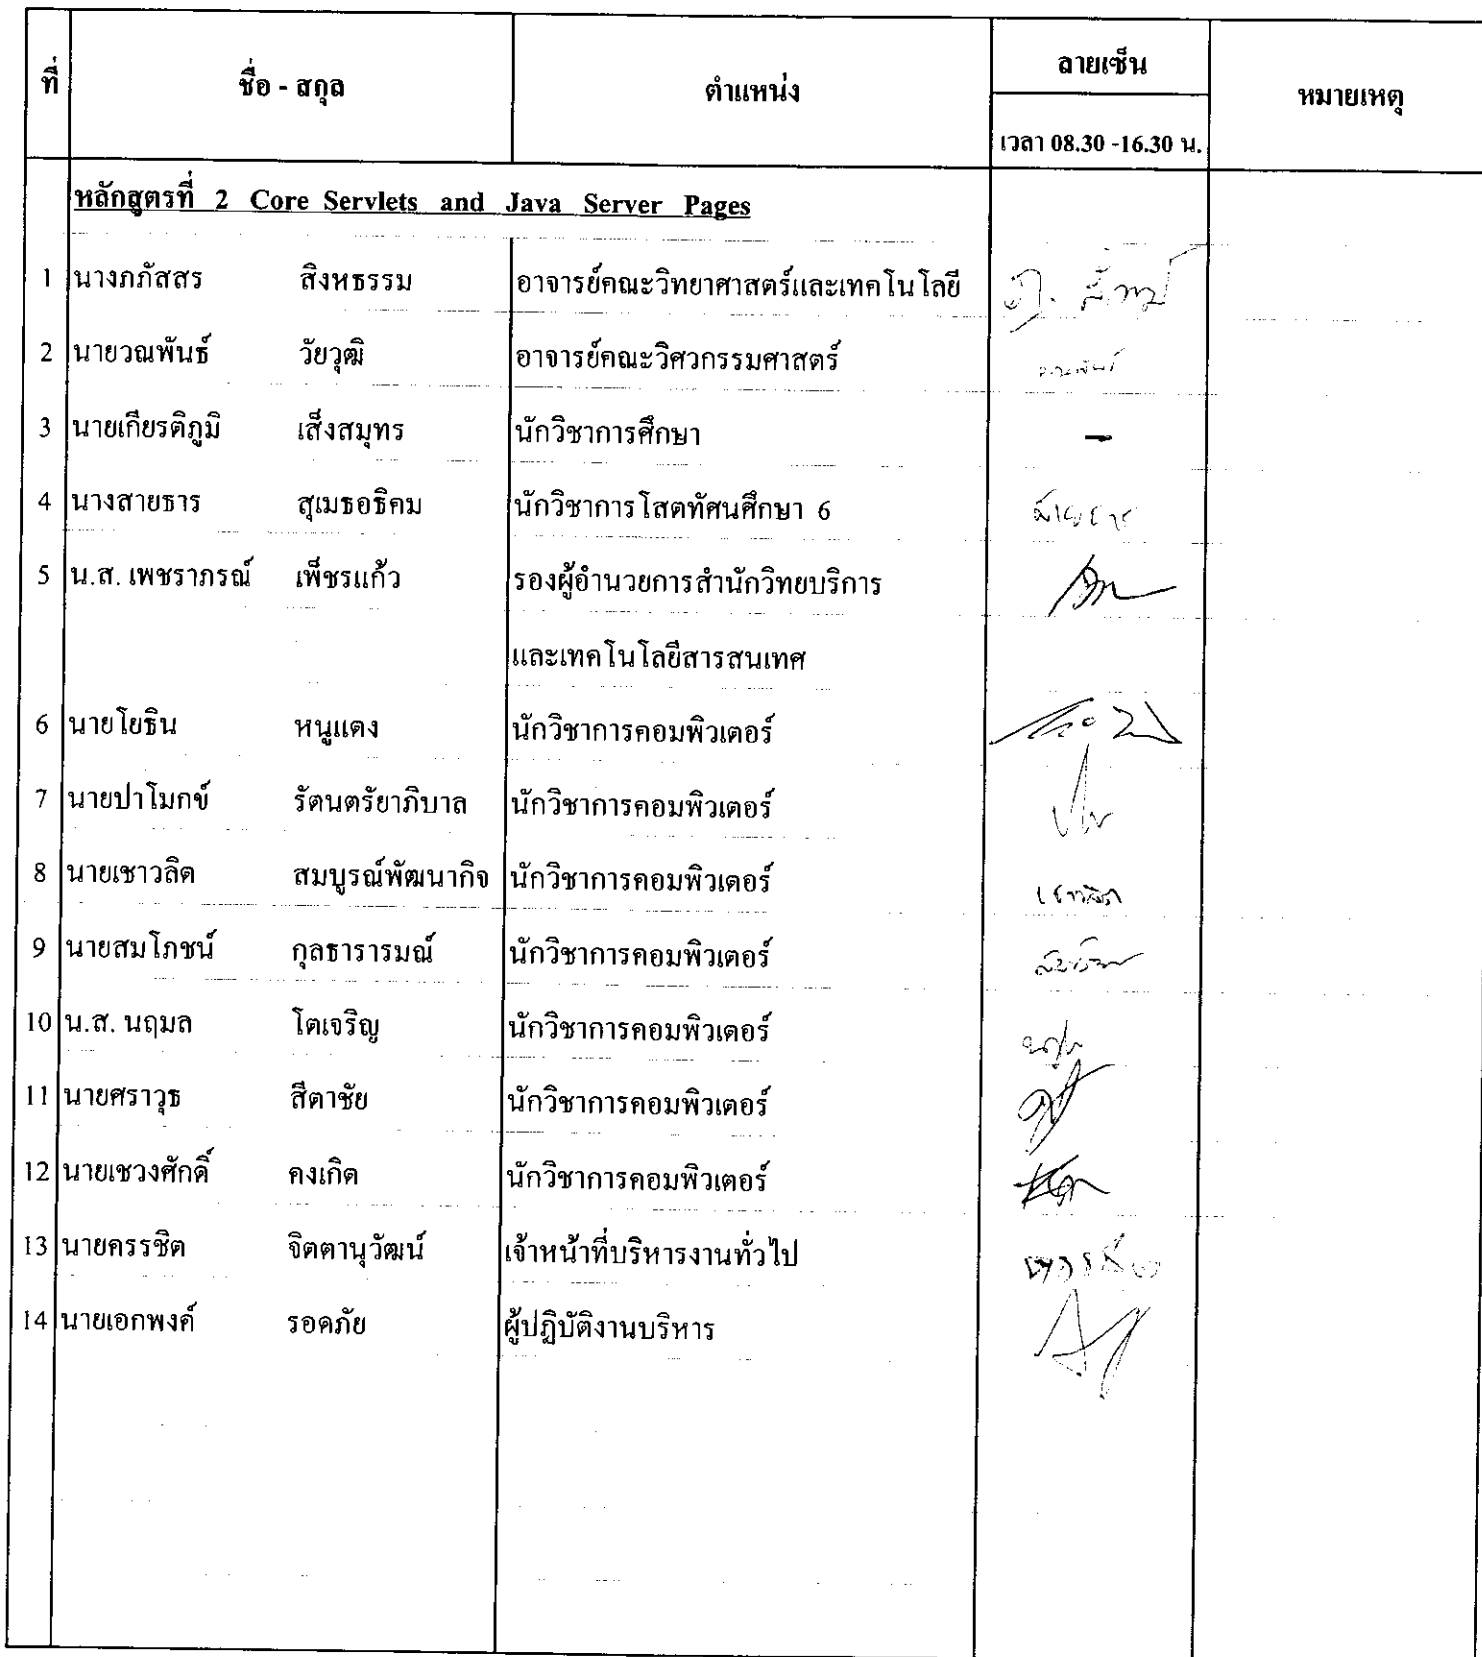 ที่ ชื่อ - สกุล ตำแหน่ง ลายเซ็น หมายเหตุ
เวลา 08.30 -16.30 น.
หลักสูตรที่ 2 Core Servlets and Java Server Pages
1 นางภภัสสร สิงหธรรม อาจารย์คณะวิทยาศาสตร์และเทคโนโลยี
2 นายวณพันธ์ วัยวุฒิ อาจารย์คณะวิศวกรรมศาสตร์ วณพันธ์
3 นายเกียรติภูมิ เส็งสมุทร นักวิชาการศึกษา -
4 นางสายธาร สุเมธอธิคม นักวิชาการโสตทัศนศึกษา 6 สายธาร
5 น.ส. เพชราภรณ์ เพ็ชรแก้ว รองผู้อำนวยการสำนักวิทยบริการ
และเทคโนโลยีสารสนเทศ
6 นายโยธิน หนูแดง นักวิชาการคอมพิวเตอร์
7 นายปาโมกข์ รัตนตรัยาภิบาล นักวิชาการคอมพิวเตอร์
8 นายเชาวลิต สมบูรณ์พัฒนากิจ นักวิชาการคอมพิวเตอร์ เชาวลิต
9 นายสมโภชน์ กุลธารารมณ์ นักวิชาการคอมพิวเตอร์
10 น.ส. นฤมล โตเจริญ นักวิชาการคอมพิวเตอร์
11 นายศราวุธ สีตาชัย นักวิชาการคอมพิวเตอร์
12 นายเชวงศักดิ์ คงเกิด นักวิชาการคอมพิวเตอร์
13 นายครรชิต จิตตานุวัฒน์ เจ้าหน้าที่บริหารงานทั่วไป ครรชิต
14 นายเอกพงค์ รอดภัย ผู้ปฏิบัติงานบริหาร